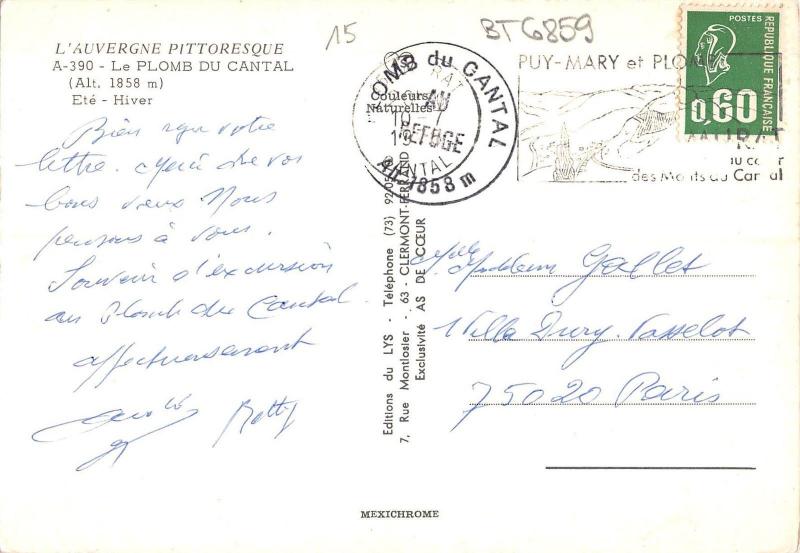 15
BT6859
L'AUVERGNE PITTORESQUE
A-390 - Le PLOMB DU CANTAL
(Alt. 1858 m)
Eté - Hiver
Couleurs
Naturelles
OMB du CANTAL
AU
REFUGE
CANTAL
Alt. 1858 m
PUY-MARY et PLOMB
des Monts du Cantal
POSTES
REPUBLIQUE FRANÇAISE
0,60
Bien reçu votre
lettre. Merci de vos
bons vœux Nous
pensons à vous.
Souvenir d'excursion
au Plomb du Cantal
affectueusement
Betty
Editions du LYS - Téléphone (73) 92-05
7, Rue Montlosier - 63 - CLERMONT-FERRAND
Exclusivité AS DE CŒUR
Mlle Madeleine Gallet
1 Villa Dury-Vasselot
75020 Paris
MEXICHROME